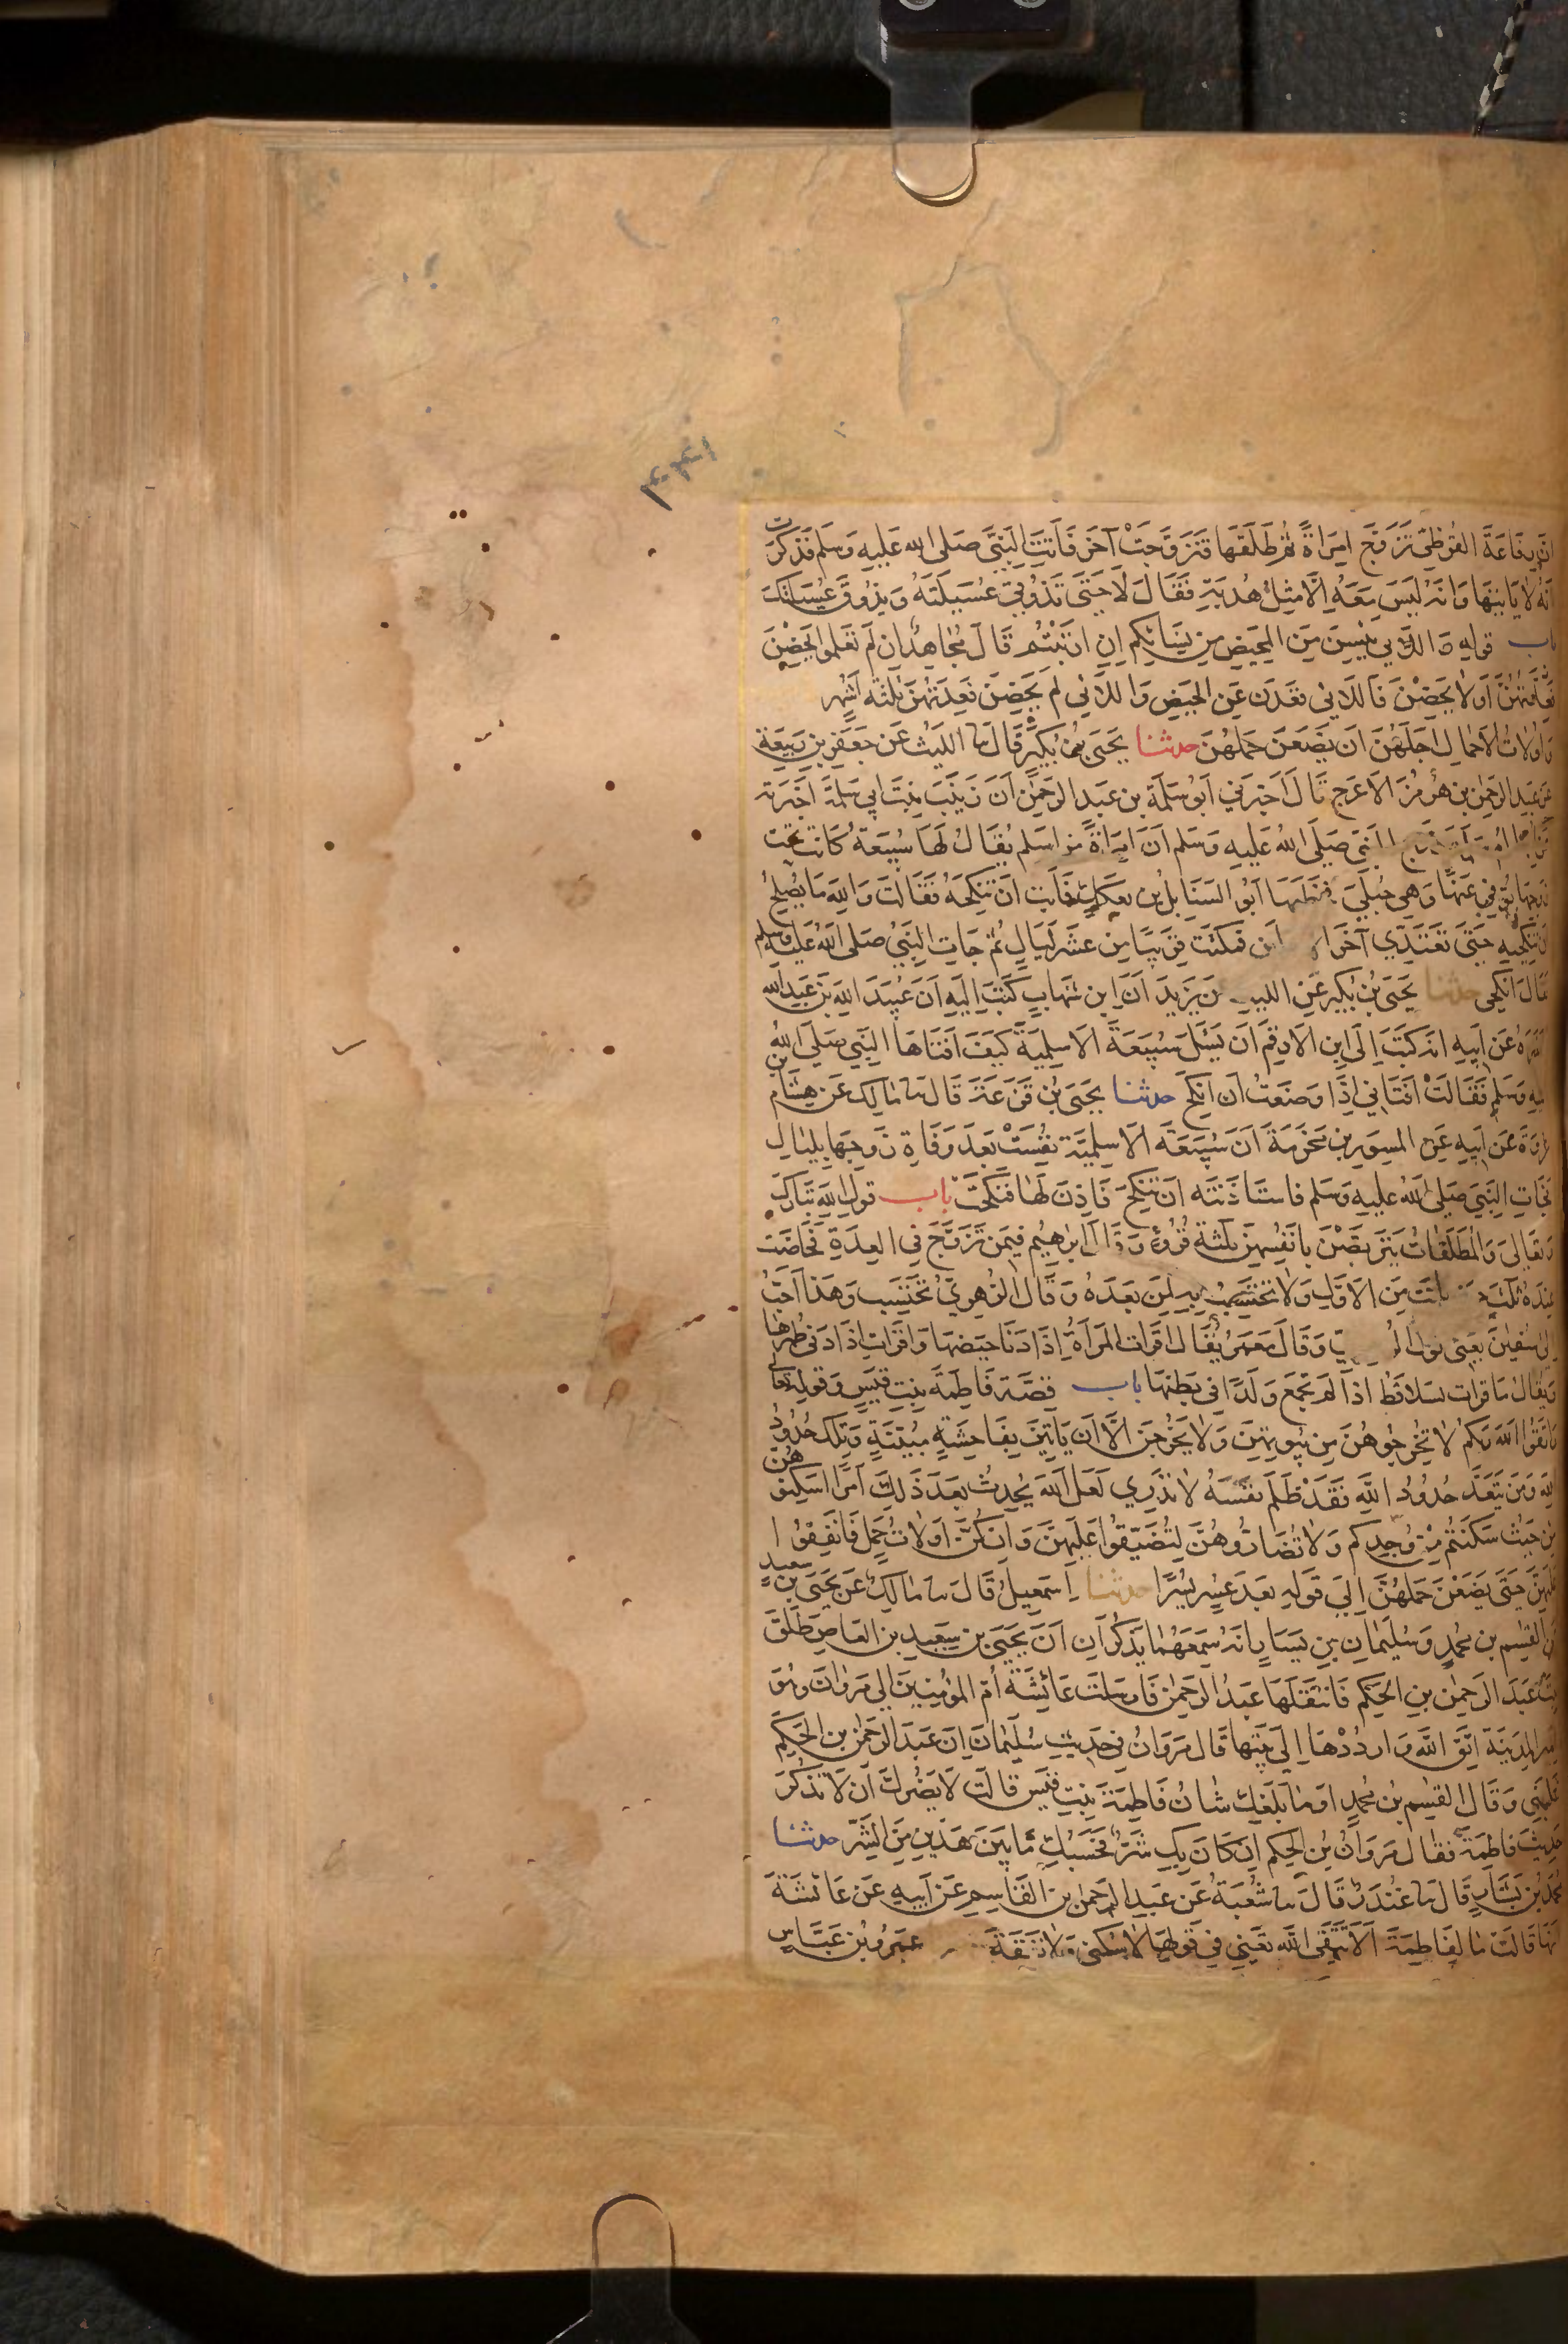 ان رفاعة القرظي تزوج امراة ثم طلقها فتزوجت آخر فاتت النبي صلى الله عليه وسلم فذكرت
انه لا ياتيها وانه ليس معه الا مثل هدبة فقال لا حتى تذوقي عسيلته ويذوق عسيلتك
باب قوله واللائي يئسن من المحيض من نسائكم ان ارتبتم قال مجاهد ان لم تعلموا يحضن
او لا يحضن فاللائي قعدن عن الحيض واللائي لم يحضن فعدتهن ثلثة اشهر
واولات الاحمال اجلهن ان يضعن حملهن حدثنا يحيى بن بكير قال نا الليث عن جعفر بن ربيعة
عن عبد الرحمن بن هرمز الاعرج قال اخبرني ابو سلمة بن عبد الرحمن ان زينب بنت ابي سلمة اخبرته
النبي صلى الله عليه وسلم ان امراة من اسلم يقال لها سبيعة كانت تحت
زوجها توفي عنها وهي حبلى فخطبها ابو السنابل بن بعكك فابت ان تنكحه فقالت والله ما يصلح
ان تنكحيه حتى تعتدي آخر فمكثت قريبا من عشر ليال ثم جات النبي صلى الله عليه وسلم
فقال انكحي حدثنا يحيى بن بكير عن الليث عن يزيد ان ابن شهاب كتب اليه ان عبيد الله بن عبد الله
اخبره عن ابيه انه كتب الى ابن الارقم ان يسئل سبيعة الاسلمية كيف افتاها النبي صلى الله
عليه وسلم فقالت افتاني اذا وضعت ان انكح حدثنا يحيى بن قزعة قال نا مالك عن هشام بن
عروة عن ابيه عن المسور بن مخرمة ان سبيعة الاسلمية نفست بعد وفاة زوجها بليال
فجات النبي صلى الله عليه وسلم فاستاذنته ان تنكح فاذن لها فنكحت باب قول الله تبارك
وتعالى والمطلقات يتربصن بانفسهن ثلثة قروء وقال ابرهيم فيمن تزوج في العدة فحاضت
عنده ثلث بانت من الاول ولا تحتسب به لمن بعده وقال الزهري تحتسب وهذا احب
الى سفين يعني قول وقال معمر يقال اقرات المراة اذا دنا حيضها واقرات اذا دنى طهرها
ويقال ما قرات بسلا قط اذا لم تجمع ولدا في بطنها باب قصة فاطمة بنت قيس وقوله تعالى
واتقوا الله ربكم لا تخرجوهن من بيوتهن ولا يخرجن الا ان ياتين بفاحشة مبينة وتلك حدود
الله ومن يتعد حدود الله فقد ظلم نفسه لا تدري لعل الله يحدث بعد ذلك امرا اسكنوهن
من حيث سكنتم من وجدكم ولا تضاروهن لتضيقوا عليهن وان كن اولات حمل فانفقوا
عليهن حتى يضعن حملهن الى قوله بعد عسر يسرا حدثنا اسمعيل قال نا مالك عن يحيى بن سعيد
عن القسم بن محمد وسليمان بن يسار انه سمعهما يذكران ان يحيى بن سعيد بن العاص طلق
بنت عبد الرحمن بن الحكم فانتقلها عبد الرحمن فارسلت عائشة ام المؤمنين الى مروان وهو
امير المدينة اتق الله وارددها الى بيتها قال مروان في حديث سليمان ان عبد الرحمن بن الحكم
غلبني وقال القسم بن محمد او ما بلغك شان فاطمة بنت قيس قالت لا يضرك ان لا تذكر
حديث فاطمة فقال مروان بن الحكم ان كان بك شر فحسبك ما بين هذين من الشر حدثنا
محمد بن بشار قال نا غندر قال نا شعبة عن عبد الرحمن بن القاسم عن ابيه عن عائشة
انها قالت ما لفاطمة الا تتقي الله تعني في قولها لا سكنى ولا نفقة عمرو بن عباس